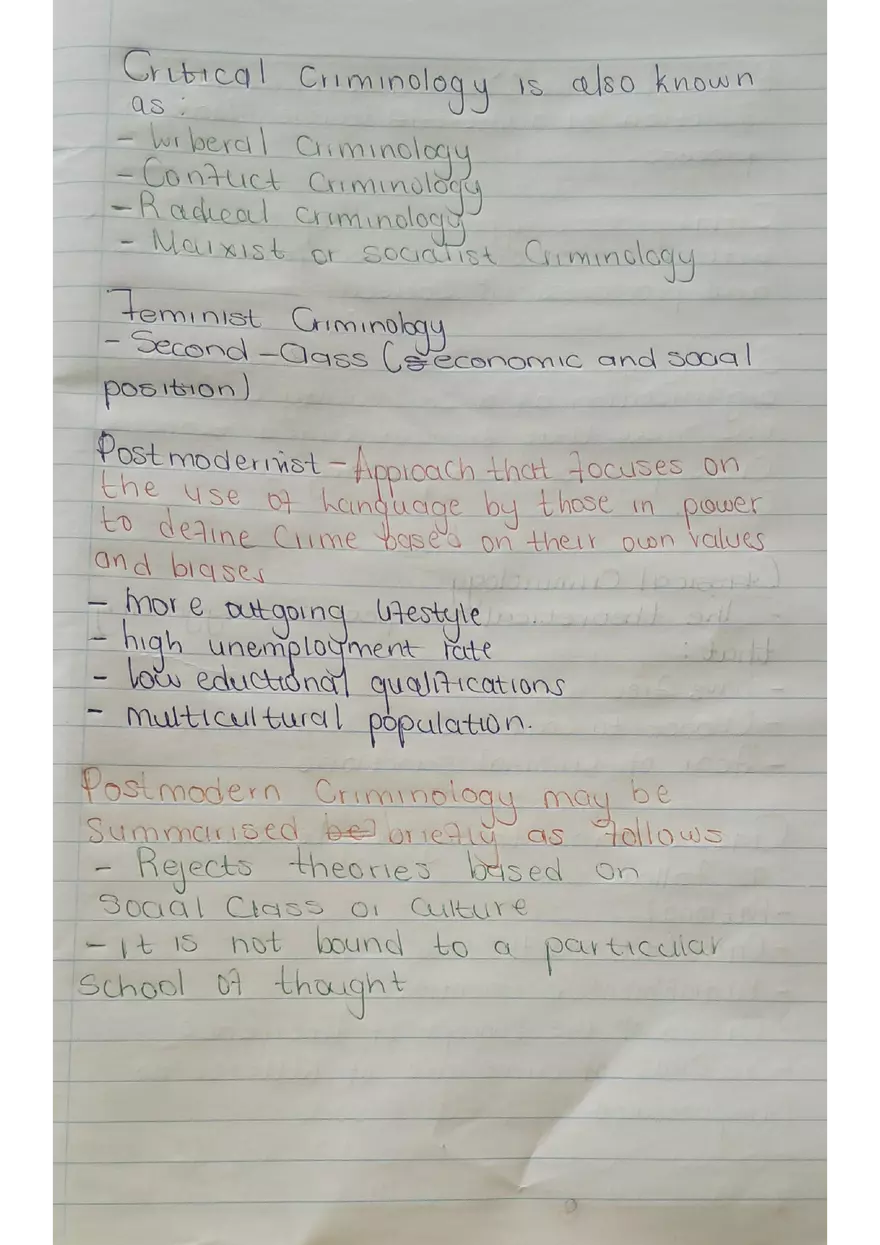 Critical Criminology is also known
as:
- Wiberal Criminology
- Conflict Criminology
- Radical criminology
- Marxist or socialist Criminology
Feminist Criminology
- Second-Class (economic and social
position)
Postmodernist - Approach that focuses on
the use of language by those in power
to define Crime based on their own values
and biases
- more outgoing lifestyle
- high unemployment rate
- low eductional qualifications
- multicultural population.
Postmodern Criminology may be
summarised be briefly as follows
- Rejects theories based on
Social Class or Culture
- It is not bound to a particular
School of thought